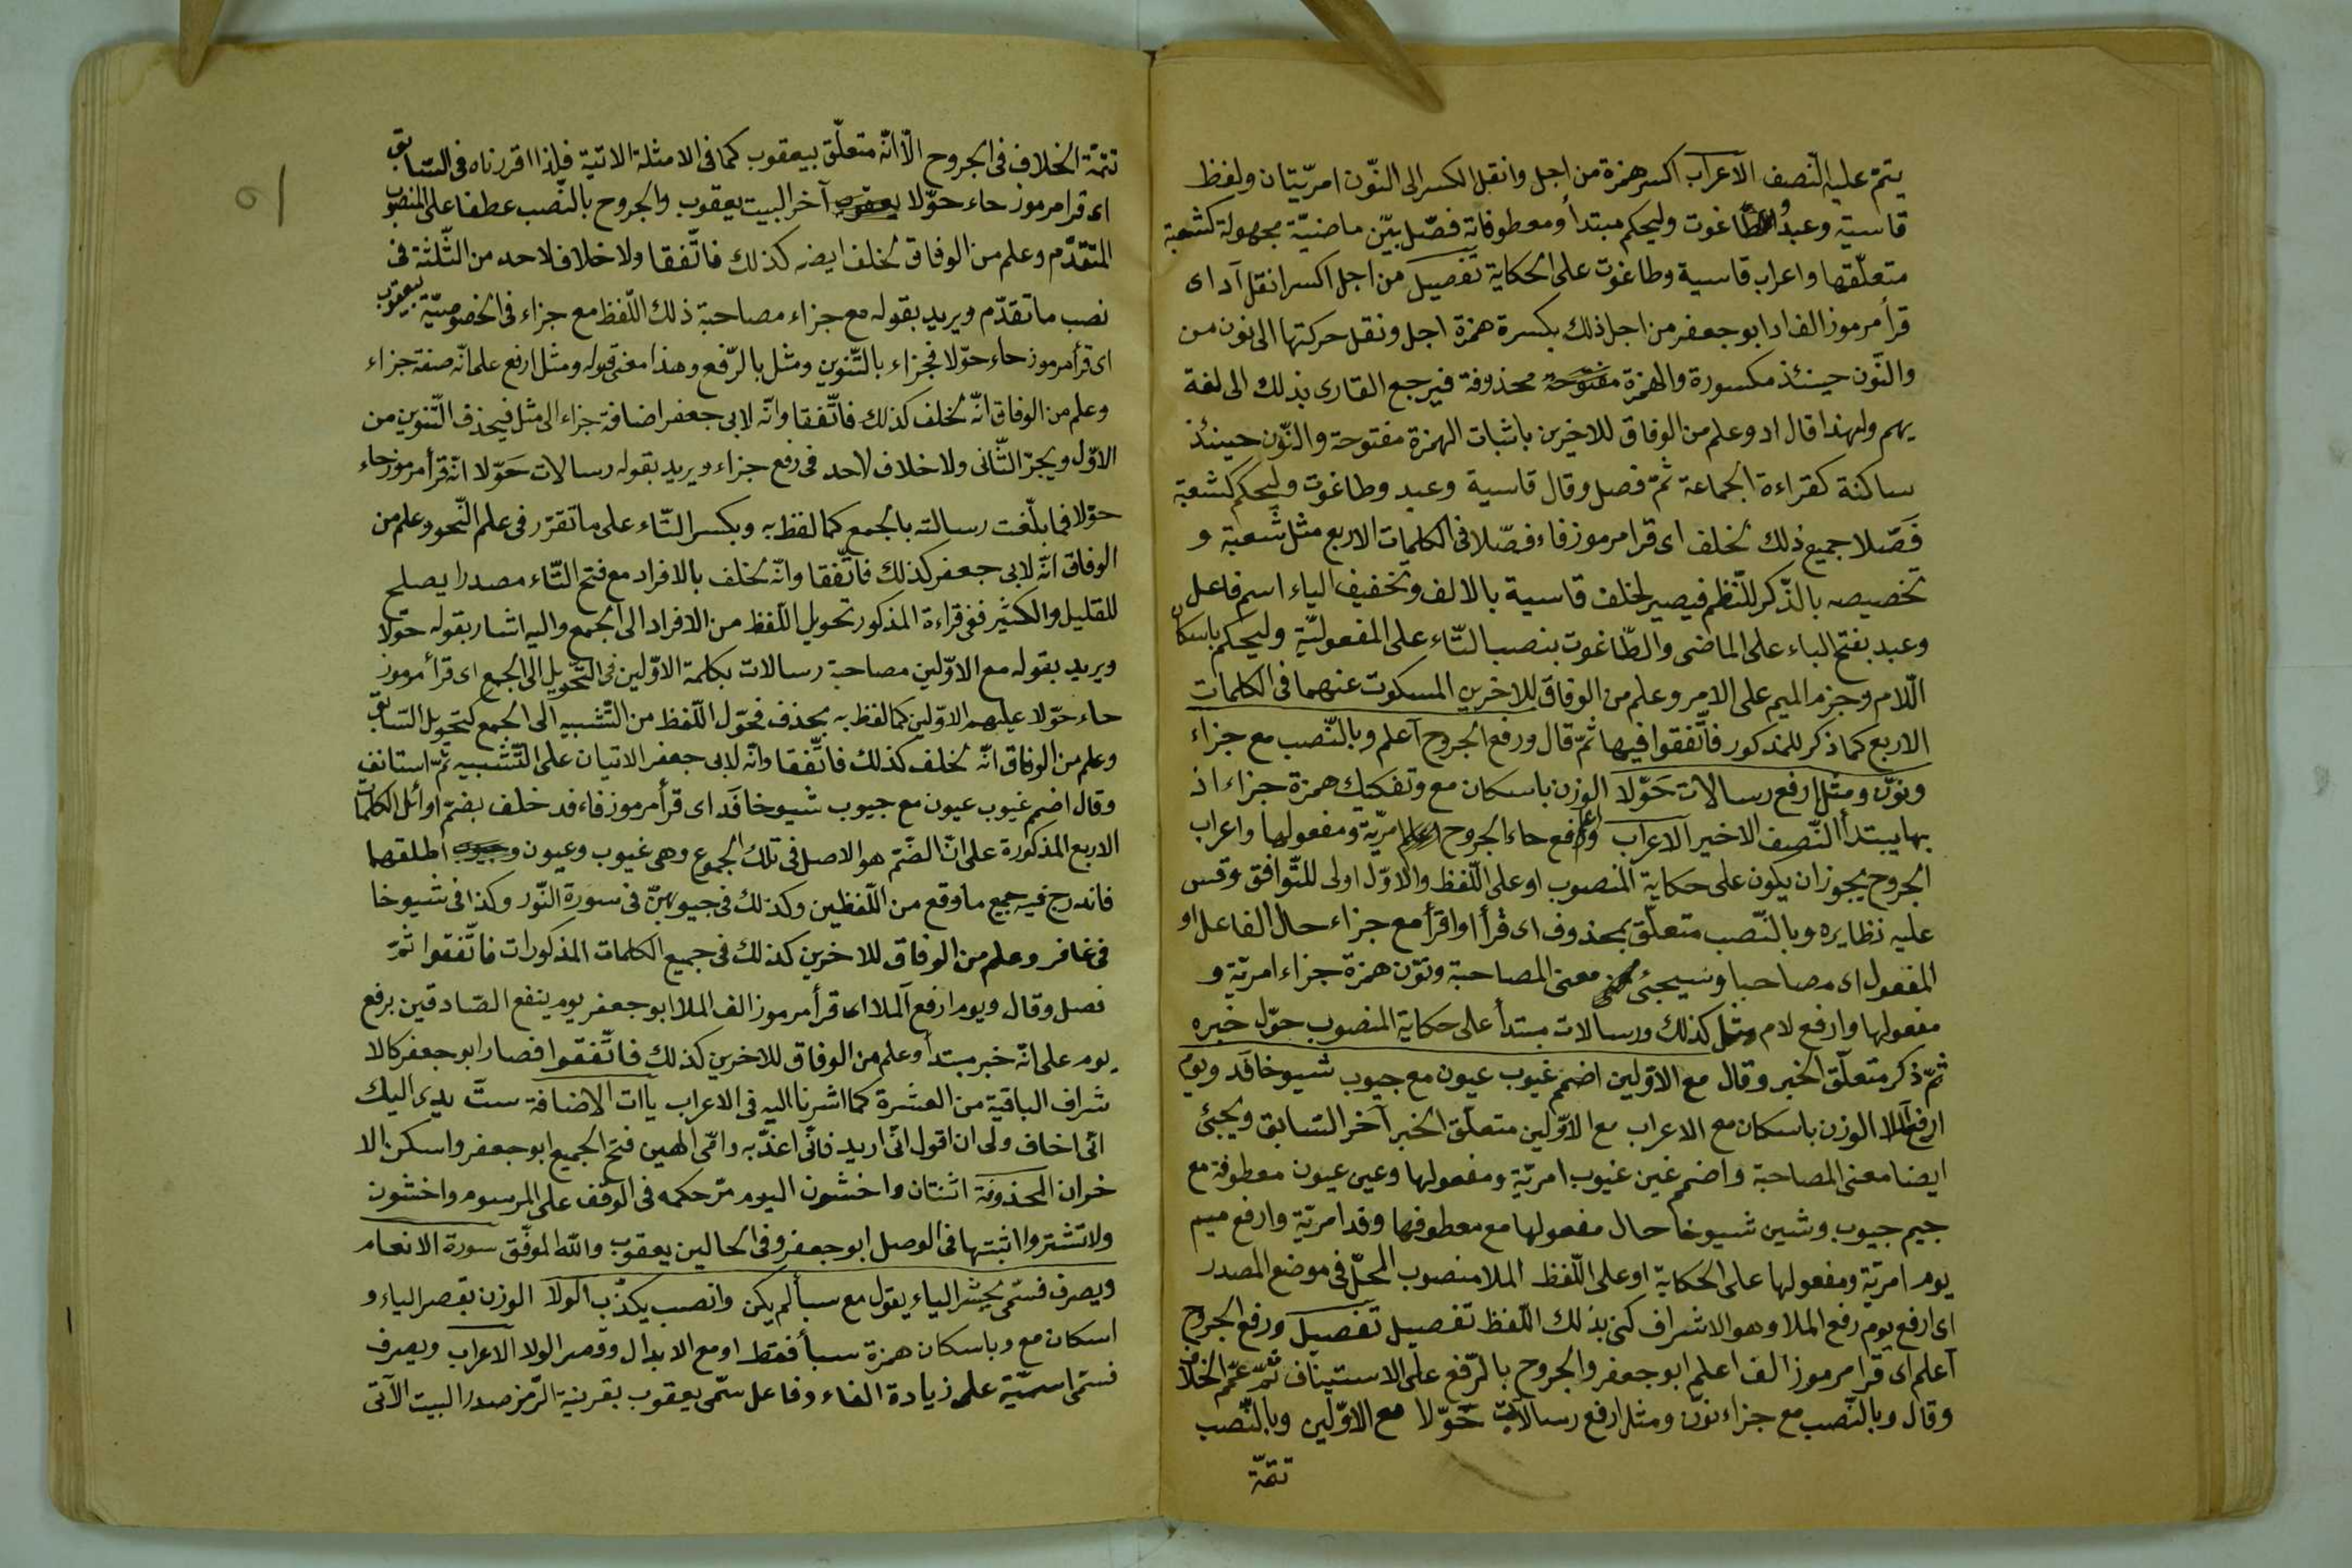 يتمّ عليه النّصف الاعراب اكسر همزة من اجل وانقل الكسر الى النّون امريّتان ولفظ
قاسية وعبد والطّاغوت وليحكم مبتدأ ومعطوفاته فصّل بيّن ماضيّة مجهولة كشعبة
متعلّقها واعراب قاسية وطاغوت على الحكاية تفصيل من اجل اكسر انقل آد اى
قرأ مرموز الف اد ابو جعفر من اجل ذلك بكسرة همزة اجل ونقل حركتها الى نون من
والنّون حينئذ مكسورة والهمزة محذوفة فيرجع القارى بذلك الى لغة
يهم ولهذا قال اد وعلم من الوفاق للاخرين باثبات الهمزة مفتوحة والنّون حينئذ
ساكنة كقراءة الجماعة ثمّ فصل وقال قاسية وعبد وطاغوت وليحكم كشعبة
فصّلا جميع ذلك لخلف اى قرا مرموز فاء فصّلا فى الكلمات الاربع مثل شعبة و
تخصيصه بالذّكر للنّظم فيصير لخلف قاسية بالالف وتخفيف الياء اسم فاعل
وعبد بفتح الباء على الماضى والطّاغوت بنصب التّاء على المفعوليّة وليحكم باسكان
الّلام وجزم الميم على الامر وعلم من الوفاق للاخرين المسكوت عنهما فى الكلمات
الاربع كما ذكر للمذكور فاتّفقوا فيها ثمّ قال ورفع الجروح آعلم وبالنّصب مع جزاء
ونوّن ومثل ارفع رسالات حَوّلا الوزن باسكان مع وتفكيك همزة جزاء اذ
بها يبتدأ النّصف الاخير الاعراب وارفع حاء الجروح اعلم امريّة ومفعولها واعراب
الجروح يجوز ان يكون على حكاية المنصوب او على اللّفظ والاوّل اولى للتّوافق وقس
عليه نظايره وبالنّصب متعلّق بمحذوف اى قرأ او اقرأ مع جزاء حال الفاعل او
المفعول اى مصاحبا وسيجئ معنى المصاحبة ونوّن همزة جزاء امريّة و
مفعولها وارفع لام مثل كذلك ورسالات مبتدأ على حكاية المنصوب حوّل خبره
ثمّ ذكر متعلّق الخبر وقال مع الاوّلين اضمم غيوب عيون مع جيوب شيوخا فَد ويوم
ارفع آلملا الوزن باسكان مع الاعراب مع الاوّلين متعلّق الخبر آخر السّابق ويجئ
ايضا معنى المصاحبة واضمم غين غيوب امريّة ومفعولها وعين عيون معطوفة مع
جيم جيوب وشين شيوخا حال مفعولها مع معطوفها وقد امريّة وارفع ميم
يوم امريّة ومفعولها على الحكاية او على اللّفظ الملا منصوب المحلّ فى موضع المصدر
اى ارفع يوم رفع الملا وهو الاشراف كنى بذلك اللّفظ تفصيل تفصيل ورفع الجروح
آعلم اى قرا مرموز الف اعلم ابو جعفر والجروح بالرّفع على الاستيناف ثمّ تمّم الخلاف
وقال وبالنّصب مع جزاء نوّن ومثل ارفع رسالات حَوّلا مع الاوّلين وبالنّصب
تتمّة
تتمّة الخلاف فى الجروح الّا انّه متعلّق بيعقوب كما فى الامثلة الاتية فلذا اقررناه فى السّابق
اى قرا مرموز حاء حوّلا آخر البيت يعقوب والجروح بالنّصب عطفا على المنصوب
المتقدّم وعلم من الوفاق لخلف ايضه كذلك فاتّفقا ولا خلاف لاحد من الثّلثة فى
نصب ما تقدّم ويريد بقوله مع جزاء مصاحبة ذلك اللّفظ مع جزاء فى الخصوصيّة بيعقوب
اى قرأ مرموز حاء حوّلا فجزاء بالتّنوين ومثل بالرّفع وهذا معنى قوله ومثل ارفع على انّه صفة جزاء
وعلم من الوفاق انّه لخلف كذلك فاتّفقا وانّه لابى جعفر اضافة جزاء الى مثل فيحذف التّنوين من
الاوّل ويجرّ الثّانى ولا خلاف لاحد فى رفع جزاء ويريد بقوله رسالات حَوّلا انّه قرأ مرموز حاء
حوّلا فما بلّغت رسالته بالجمع كما لفظ به وبكسر التّاء على ما تقرّر فى علم النّحو وعلم من
الوفاق انّه لابى جعفر كذلك فاتّفقا وانّه لخلف بالافراد مع فتح التّاء مصدرا يصلح
للقليل والكثير ففى قراءة المذكور تحويل اللّفظ من الافراد الى الجمع واليه اشار بقوله حوّلا
ويريد بقوله مع الاوّلين مصاحبة رسالات بكلمة الاوّلين فى التّحويل الى الجمع اى قرأ مرموز
حاء حوّلا عليهم الاوّلين كما لفظ به بحذف فحوّل اللّفظ من التّشبيه الى الجمع كتحويل السّابق
وعلم من الوفاق انّه لخلف كذلك فاتّفقا وانّه لابى جعفر الاتيان على التّشبيه ثمّ استانف
وقال اضمم غيوب عيون مع جيوب شيوخا فَد اى قرأ مرموز فاء فد خلف بضمّ اوائل الكلمات
الاربع المذكورة على انّ الضّمّ هو الاصل فى تلك الجموع وهى غيوب وعيون اطلقهما
فاندرج فيه جميع ما وقع من اللّفظين وكذلك فى جيوبهنّ فى سورة النّور وكذا فى شيوخا
فى غافر وعلم من الوفاق للاخرين كذلك فى جميع الكلمات المذكورات فاتّفقوا ثمّ
فصل وقال ويوم ارفع آلملا اى قرأ مرموز الف الملا ابو جعفر يوم ينفع الصّادقين برفع
يوم على انّه خبر مبتدأ وعلم من الوفاق للاخرين كذلك فاتّفقوا فصار ابو جعفر كالا
شراف الباقية من العشرة كما اشرنا اليه فى الاعراب ياات الاضافة ستّ يدى اليك
انّى اخاف ولى ان اقول انّى اريد فانّى اعذّبه وامّى الهين فتح الجميع ابو جعفر واسكن الا
خران المحذوفة اثنتان واخشون اليوم مرّ حكمه فى الوقف على المرسوم واخشون
ولا تشتروا اثبتها فى الوصل ابو جعفر وفى الحالين يعقوب والله الموفّق سورة الانعام
ويصرف فسمّى نحشر الياء يقول مع سبأ لم يكن وانصب يكذّب الولا الوزن بقصر الياء و
اسكان مع وباسكان همزة سبأ فقط او مع الابدال وقصر الولا الاعراب ويصرف
فسمّى اسميّة على زيادة الفاء وفاعل سمّى يعقوب بقرينة الرّمز صدر البيت الآتى